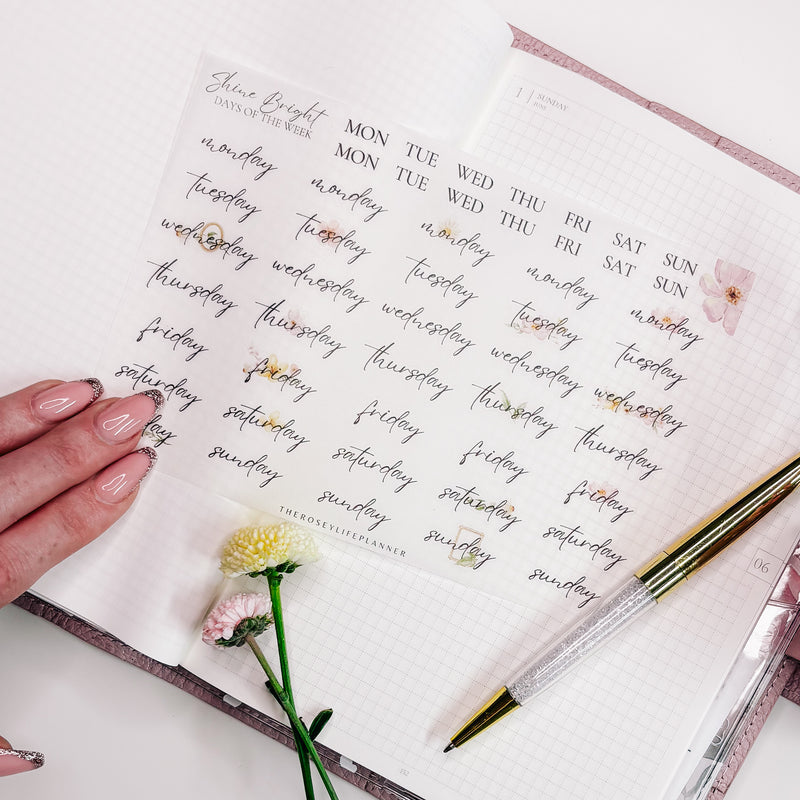 Shine Bright
DAYS OF THE WEEK
MON TUE WED THU FRI SAT SUN
MON TUE WED THU FRI SAT SUN
monday monday monday monday monday
tuesday tuesday tuesday tuesday tuesday
wednesday wednesday wednesday wednesday wednesday
thursday thursday thursday thursday thursday
friday friday friday friday friday
saturday saturday saturday saturday saturday
sunday sunday sunday sunday
THEROSEYLIFEPLANNER
1 SUNDAY
JUNE
06